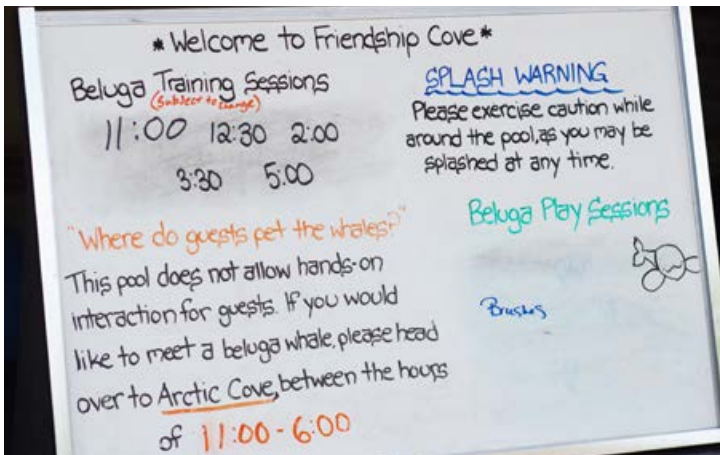 *Welcome to Friendship Cove*
Beluga Training Sessions
(Subject to change)
11:00 12:30 2:00
3:30 5:00
"Where do guests pet the whales?"
This pool does not allow hands-on
interaction for guests. If you would
like to meet a beluga whale, please head
over to Arctic Cove, between the hours
of 11:00-6:00
SPLASH WARNING
Please exercise caution while
around the pool, as you may be
splashed at any time.
Beluga Play Sessions
Brushes